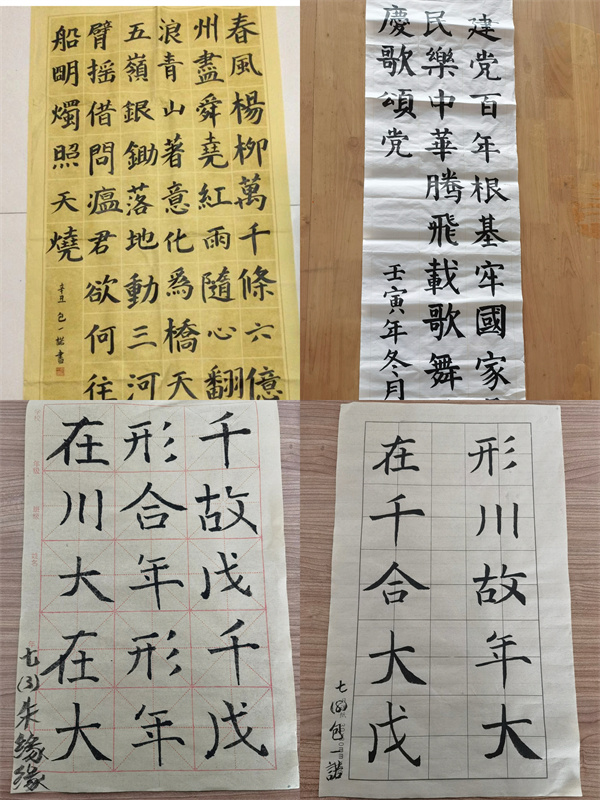 春風楊柳萬千條六億
州盡舜堯紅雨隨心翻
浪青山著意化爲橋天
五嶺銀鋤落地動三河
臂摇借問瘟君欲何往
船眀燭照天燒
辛丑 包一諾書
建党百年根基牢國家
民樂中華騰飛載歌舞
慶歌頌党
壬寅年冬月
千故戊千戊
形合年形年
在川大在大
七(3)朱緣緣
形川故年大
在千合大戊
七(8)包一諾